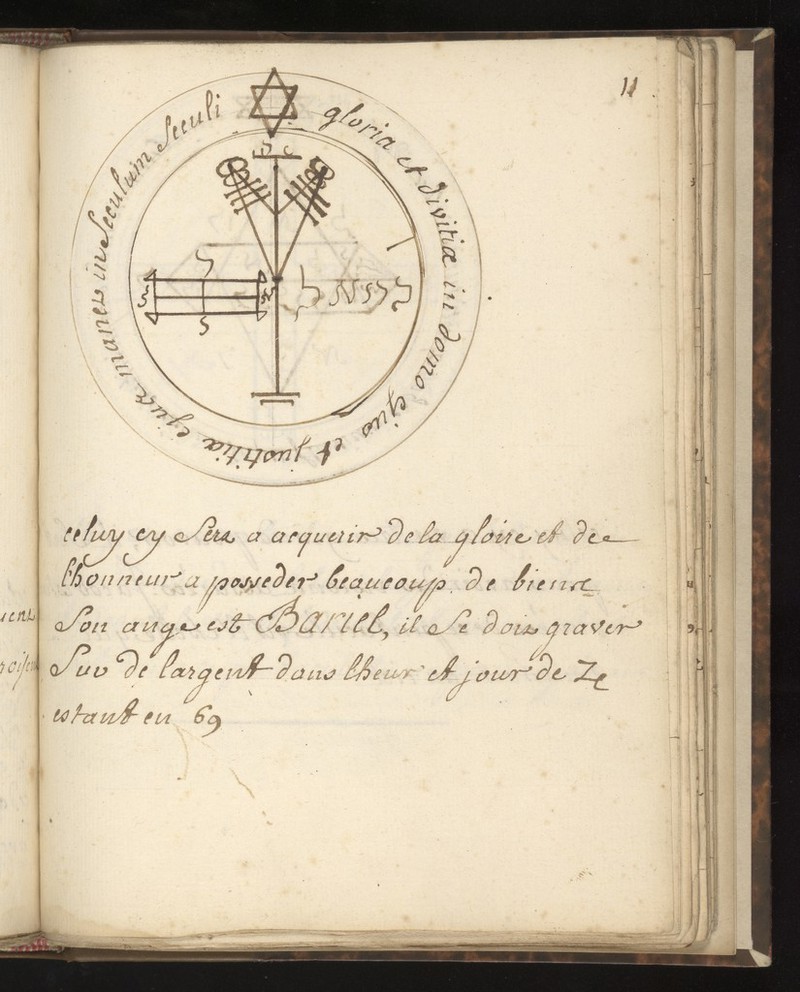 11
gloria et divitiæ in domo ejus et justitia ejus manet in Seculum Seculi
celuy cy Sert a acquerir de la gloire et de
lhonneur a posseder beaucoup de biens
Son ange est Bariel, il Se doit graver
Sur de largent dans lheur et jour de ♃
estant en ♋